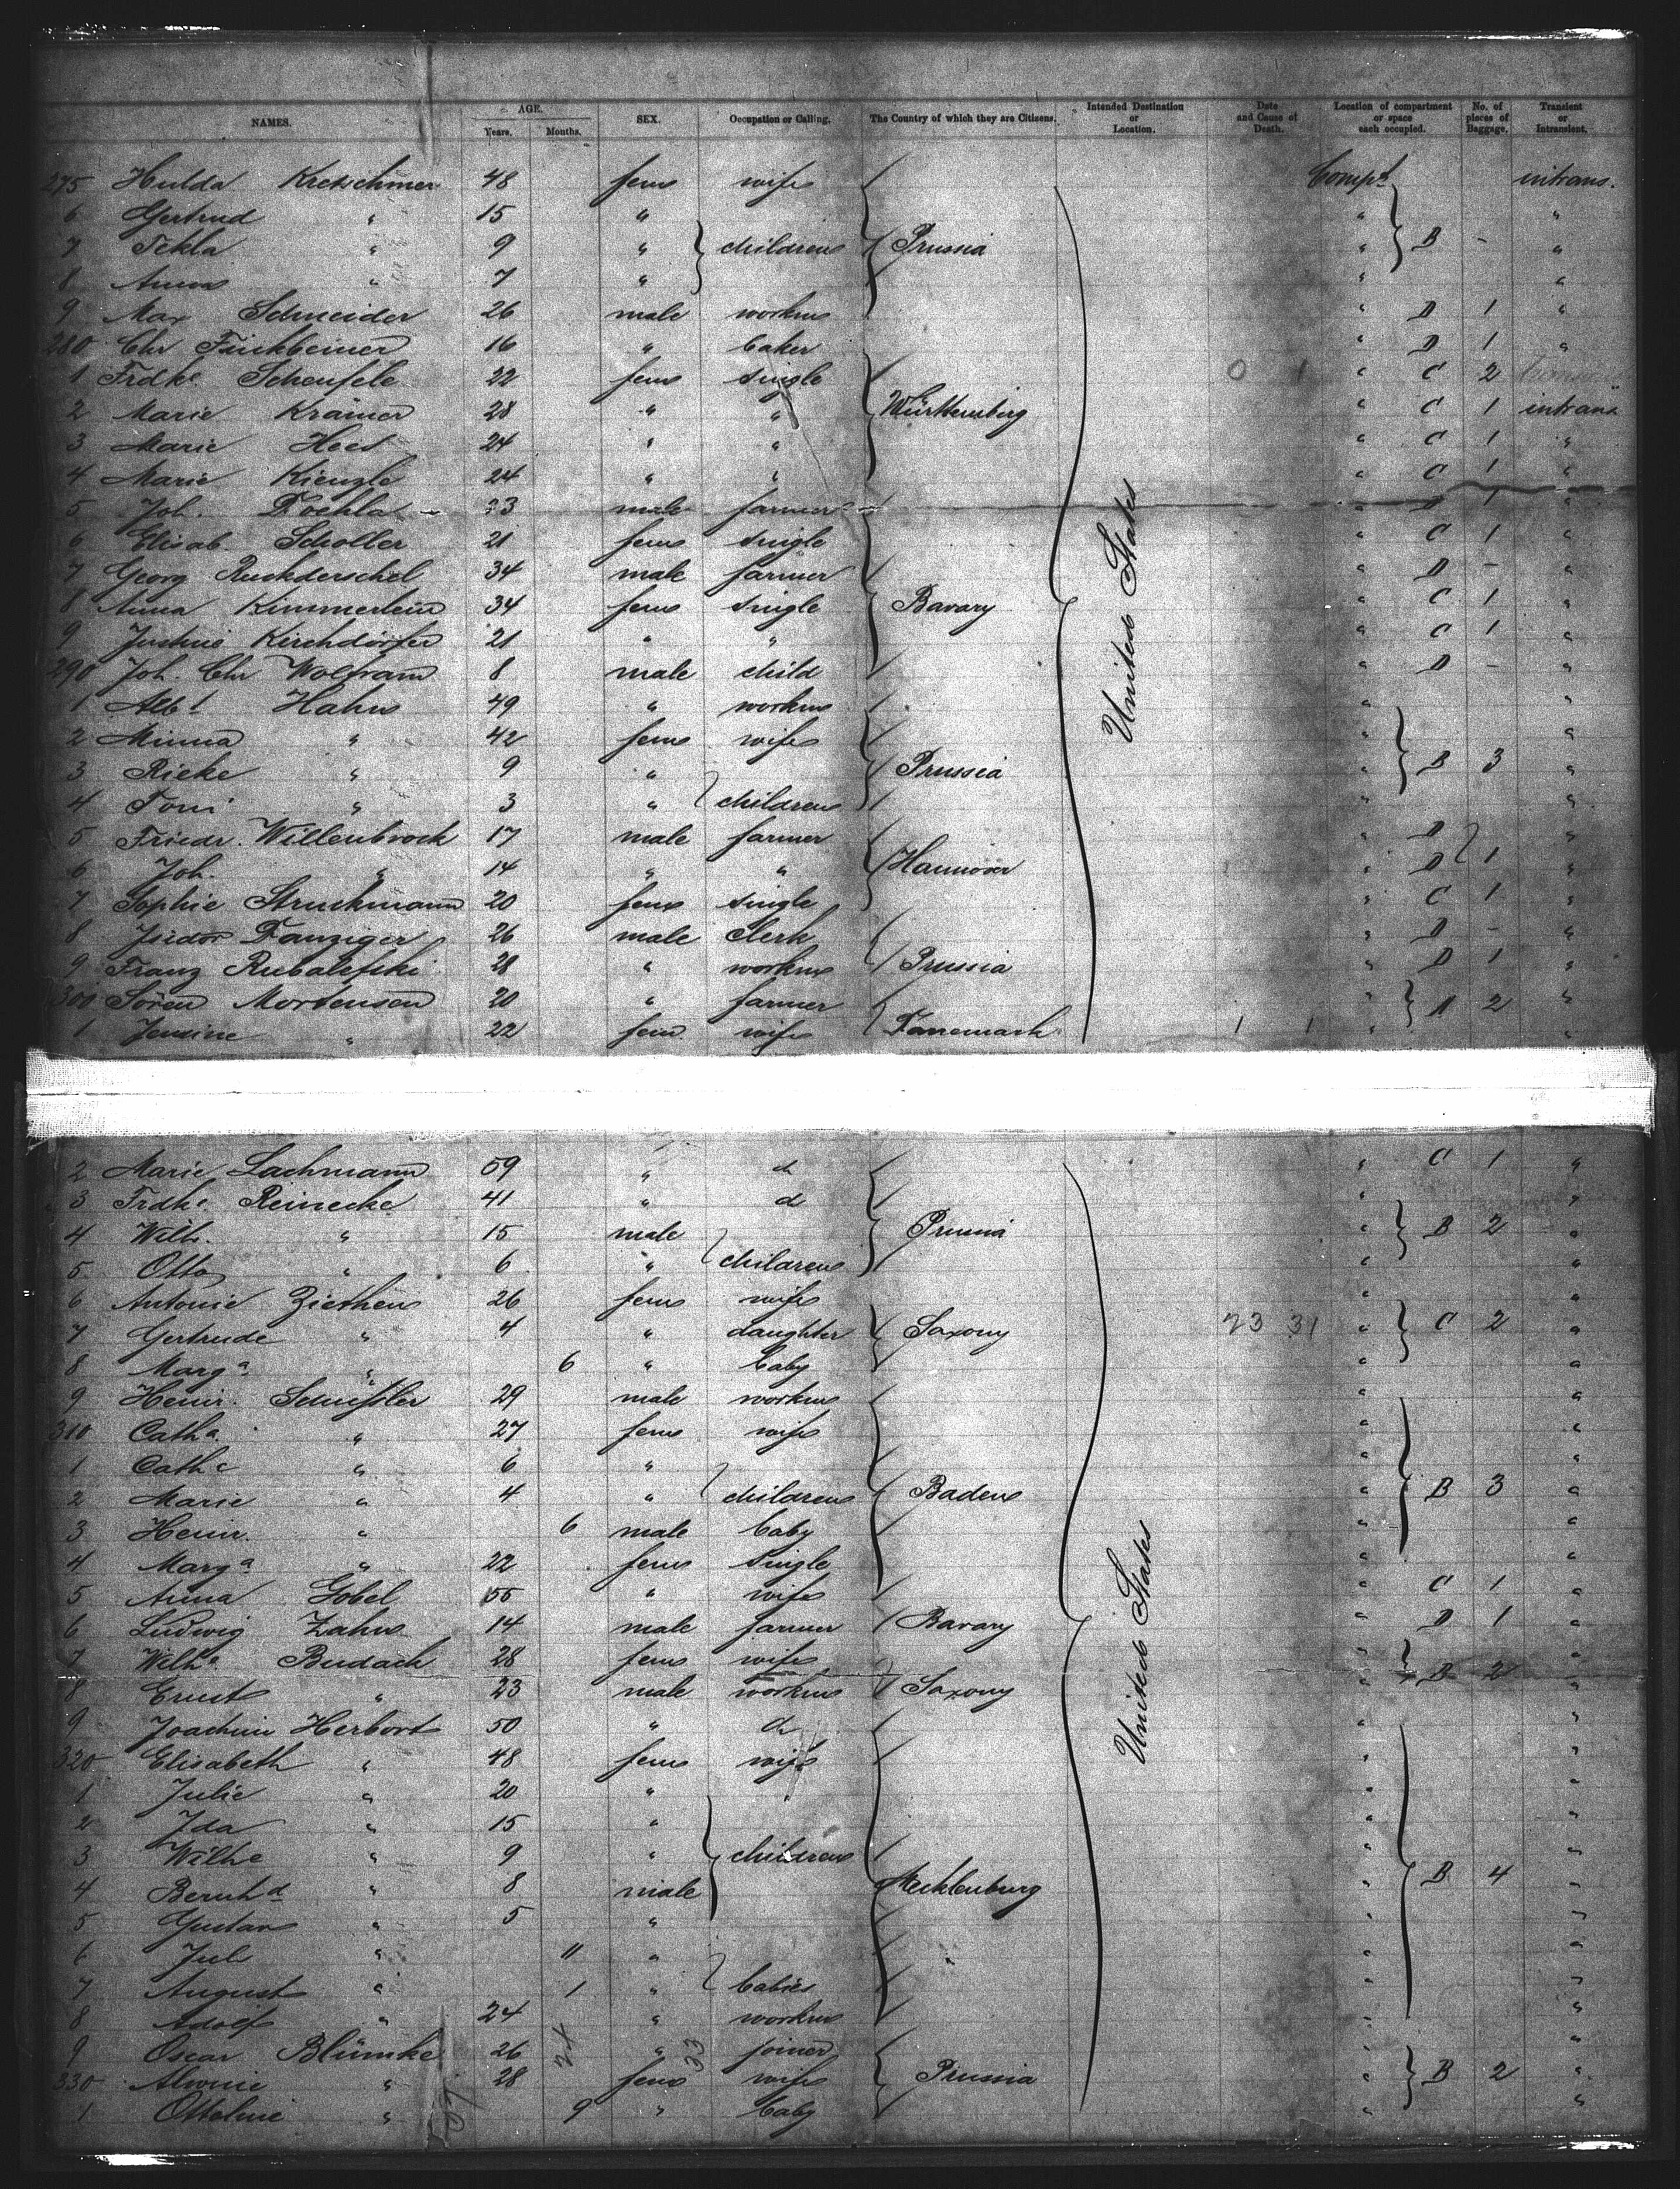 NAMES. AGE. Years. Months. SEX. Occupation or Calling. The Country of which they are Citizens. Intended Destination or Location. Date and Cause of Death. Location of compartment or space each occupied. No. of pieces of Baggage. Transient or Intransient.
275 Hulda Kretschmer 48 fem wife Compt intrans.
6 Gertrud " 15 " " "
7 Tekla " 9 " children Prussia " B - "
8 Anna " 7 " " "
9 Max Schneider 26 male workm " D 1 "
280 Chr Finkbeiner 16 " baker " D 1 "
1 Frdke. Scheufele 22 fem single 0 1 " C 2
2 Marie Krämer 28 " " Württemberg " C 1 intrans
3 Marie Hees 24 " " " C 1 "
4 Marie Kienzle 24 " " " C 1 "
5 Joh. 23 male farmer " D 1 "
6 Elisab. Scholler 21 fem single " C 1 "
7 Georg Ruckderschel 34 male farmer " D - "
8 Anna Kimmerlein 34 fem single Bavary " C 1 "
9 Justine Kirchdörfer 21 " " " C 1 "
290 Joh. Chr Wolfram 8 male child " D - "
1 Albt Hahn 49 " workm " "
2 Minna " 42 fem wife " "
3 Rieke " 9 " Prussia " B 3 "
4 Toni " 3 " children " "
5 Friedr. Willenbrock 17 male farmer " D "
6 Joh. " 14 " " Hannover " D 1 "
7 Sophie Struckmann 20 fem single " C 1 "
8 Isidor Danziger 26 male Clerk " D - "
9 Franz Rubalefski 28 " workm Prussia " D 1 "
300 Sören Mortensen 20 " farmer " A 2 "
1 Jensine " 22 fem. wife Danemark 1 1 " "
United States
2 Marie Lachmann 59 " d " C 1 "
3 Frdke. Reinecke 41 " d " "
4 Wilh. " 15 male Prussia " B 2 "
5 Otto " 6 " children " "
6 Antonie Ziethen 26 fem wife " "
7 Gertrude " 4 " daughter Saxony 23 31 " C 2 "
8 Marga " 6 " baby " "
9 Heinr. Schüssler 29 male workm " "
310 Catha. " 27 fem wife " "
1 Cathe " 6 " " "
2 Marie " 4 " children Baden " B 3 "
3 Heinr. " 6 male baby " "
4 Marga " 22 fem single " "
5 Anna Gobel 55 " wife " C 1 "
6 Ludwig Zahn 14 male farmer Bavary " D 1 "
7 Wilhe. Budach 28 fem wife " "
8 Ernst " 23 male workm Saxony " B 2 "
9 Joachim Herbort 50 " d " "
320 Elisabeth " 48 fem wife " "
1 Julie " 20 " " "
2 Ida " 15 " " "
3 Wilhe " 9 " children " "
4 Bernhd " 8 male Mecklenburg " B 4 "
5 Gustav " 5 " " "
6 Jul " 11 " " "
7 August " 1 " babies " "
8 Adolf " 24 " workm " "
9 Oscar Blümke 26 24 " 33 joiner " "
330 Alwine " 28 fem wife Prussia " B 2 "
1 Ottoline " 9 " baby " "
United States